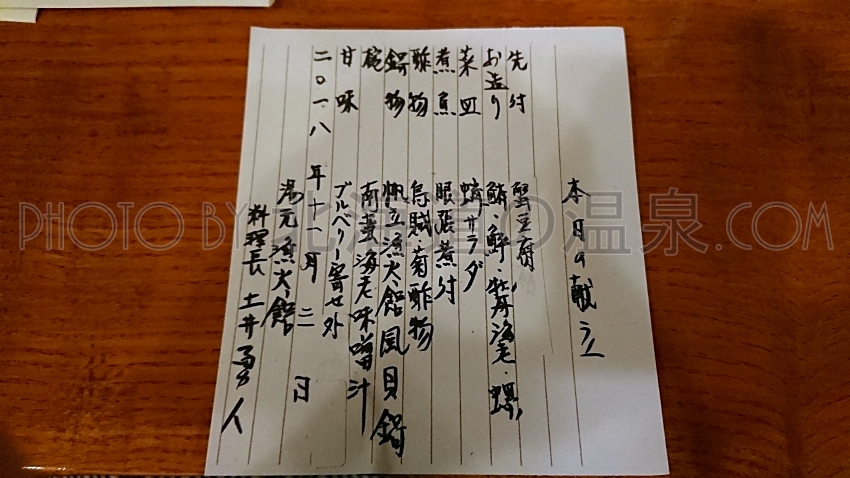 本日の献立
先付 蟹豆腐
お造り 鮪・鮃・牡丹海老・螺
菜皿 蛸サラダ
煮魚 眼張煮付
酢物 烏賊菊酢物
鍋物 帆立漁火館風貝鍋
椀 南蛮海老味噌汁
甘味 ブルベリー寄せ外
二〇一八年十一月二日
湯元漁火館
料理長 土井勇人
PHOTO BY 北海道の温泉.COM